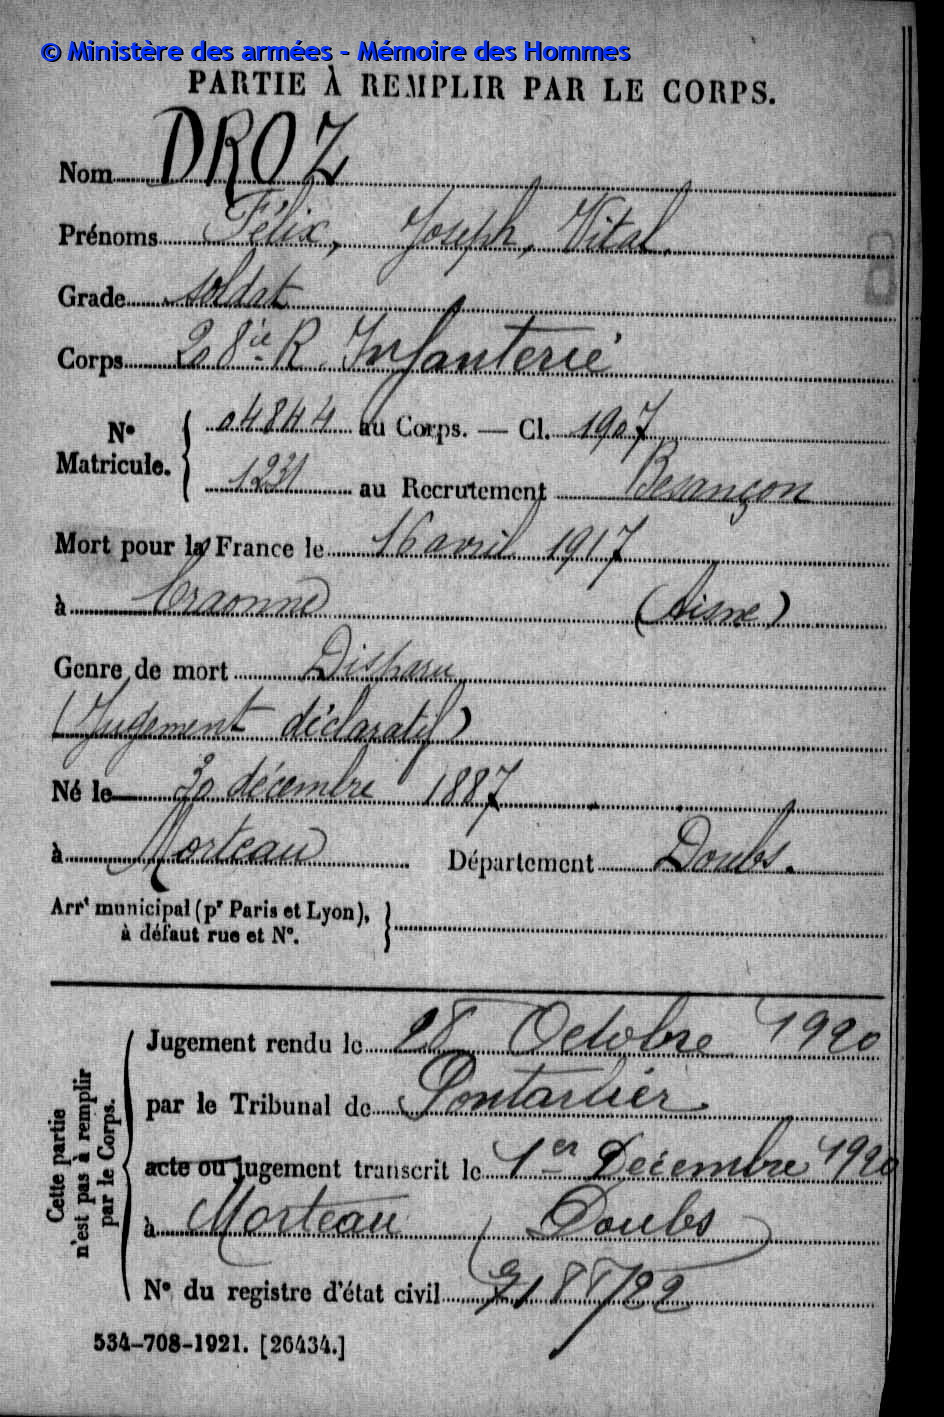 © Ministère des armées - Mémoire des Hommes
PARTIE À REMPLIR PAR LE CORPS.
Nom DROZ
Prénoms Félix, Joseph, Vital.
Grade soldat
Corps 208ie R. Infanterie
N° Matricule. { 04844 au Corps. — Cl. 1907
1231 au Recrutement Besançon
Mort pour la France le 16 avril 1917
à Craonne (Aisne)
Genre de mort Disparu
(Jugement déclaratif)
Né le 30 décembre 1887
à Morteau Département Doubs.
Arrt municipal (pr Paris et Lyon), }
à défaut rue et N°.
Cette partie n'est pas à remplir par le Corps.
Jugement rendu le 28 Octobre 1920
par le Tribunal de Pontarlier
acte ou jugement transcrit le 1er Décembre 1920
à Morteau (Doubs)
N° du registre d'état civil
534-708-1921. [26434.]